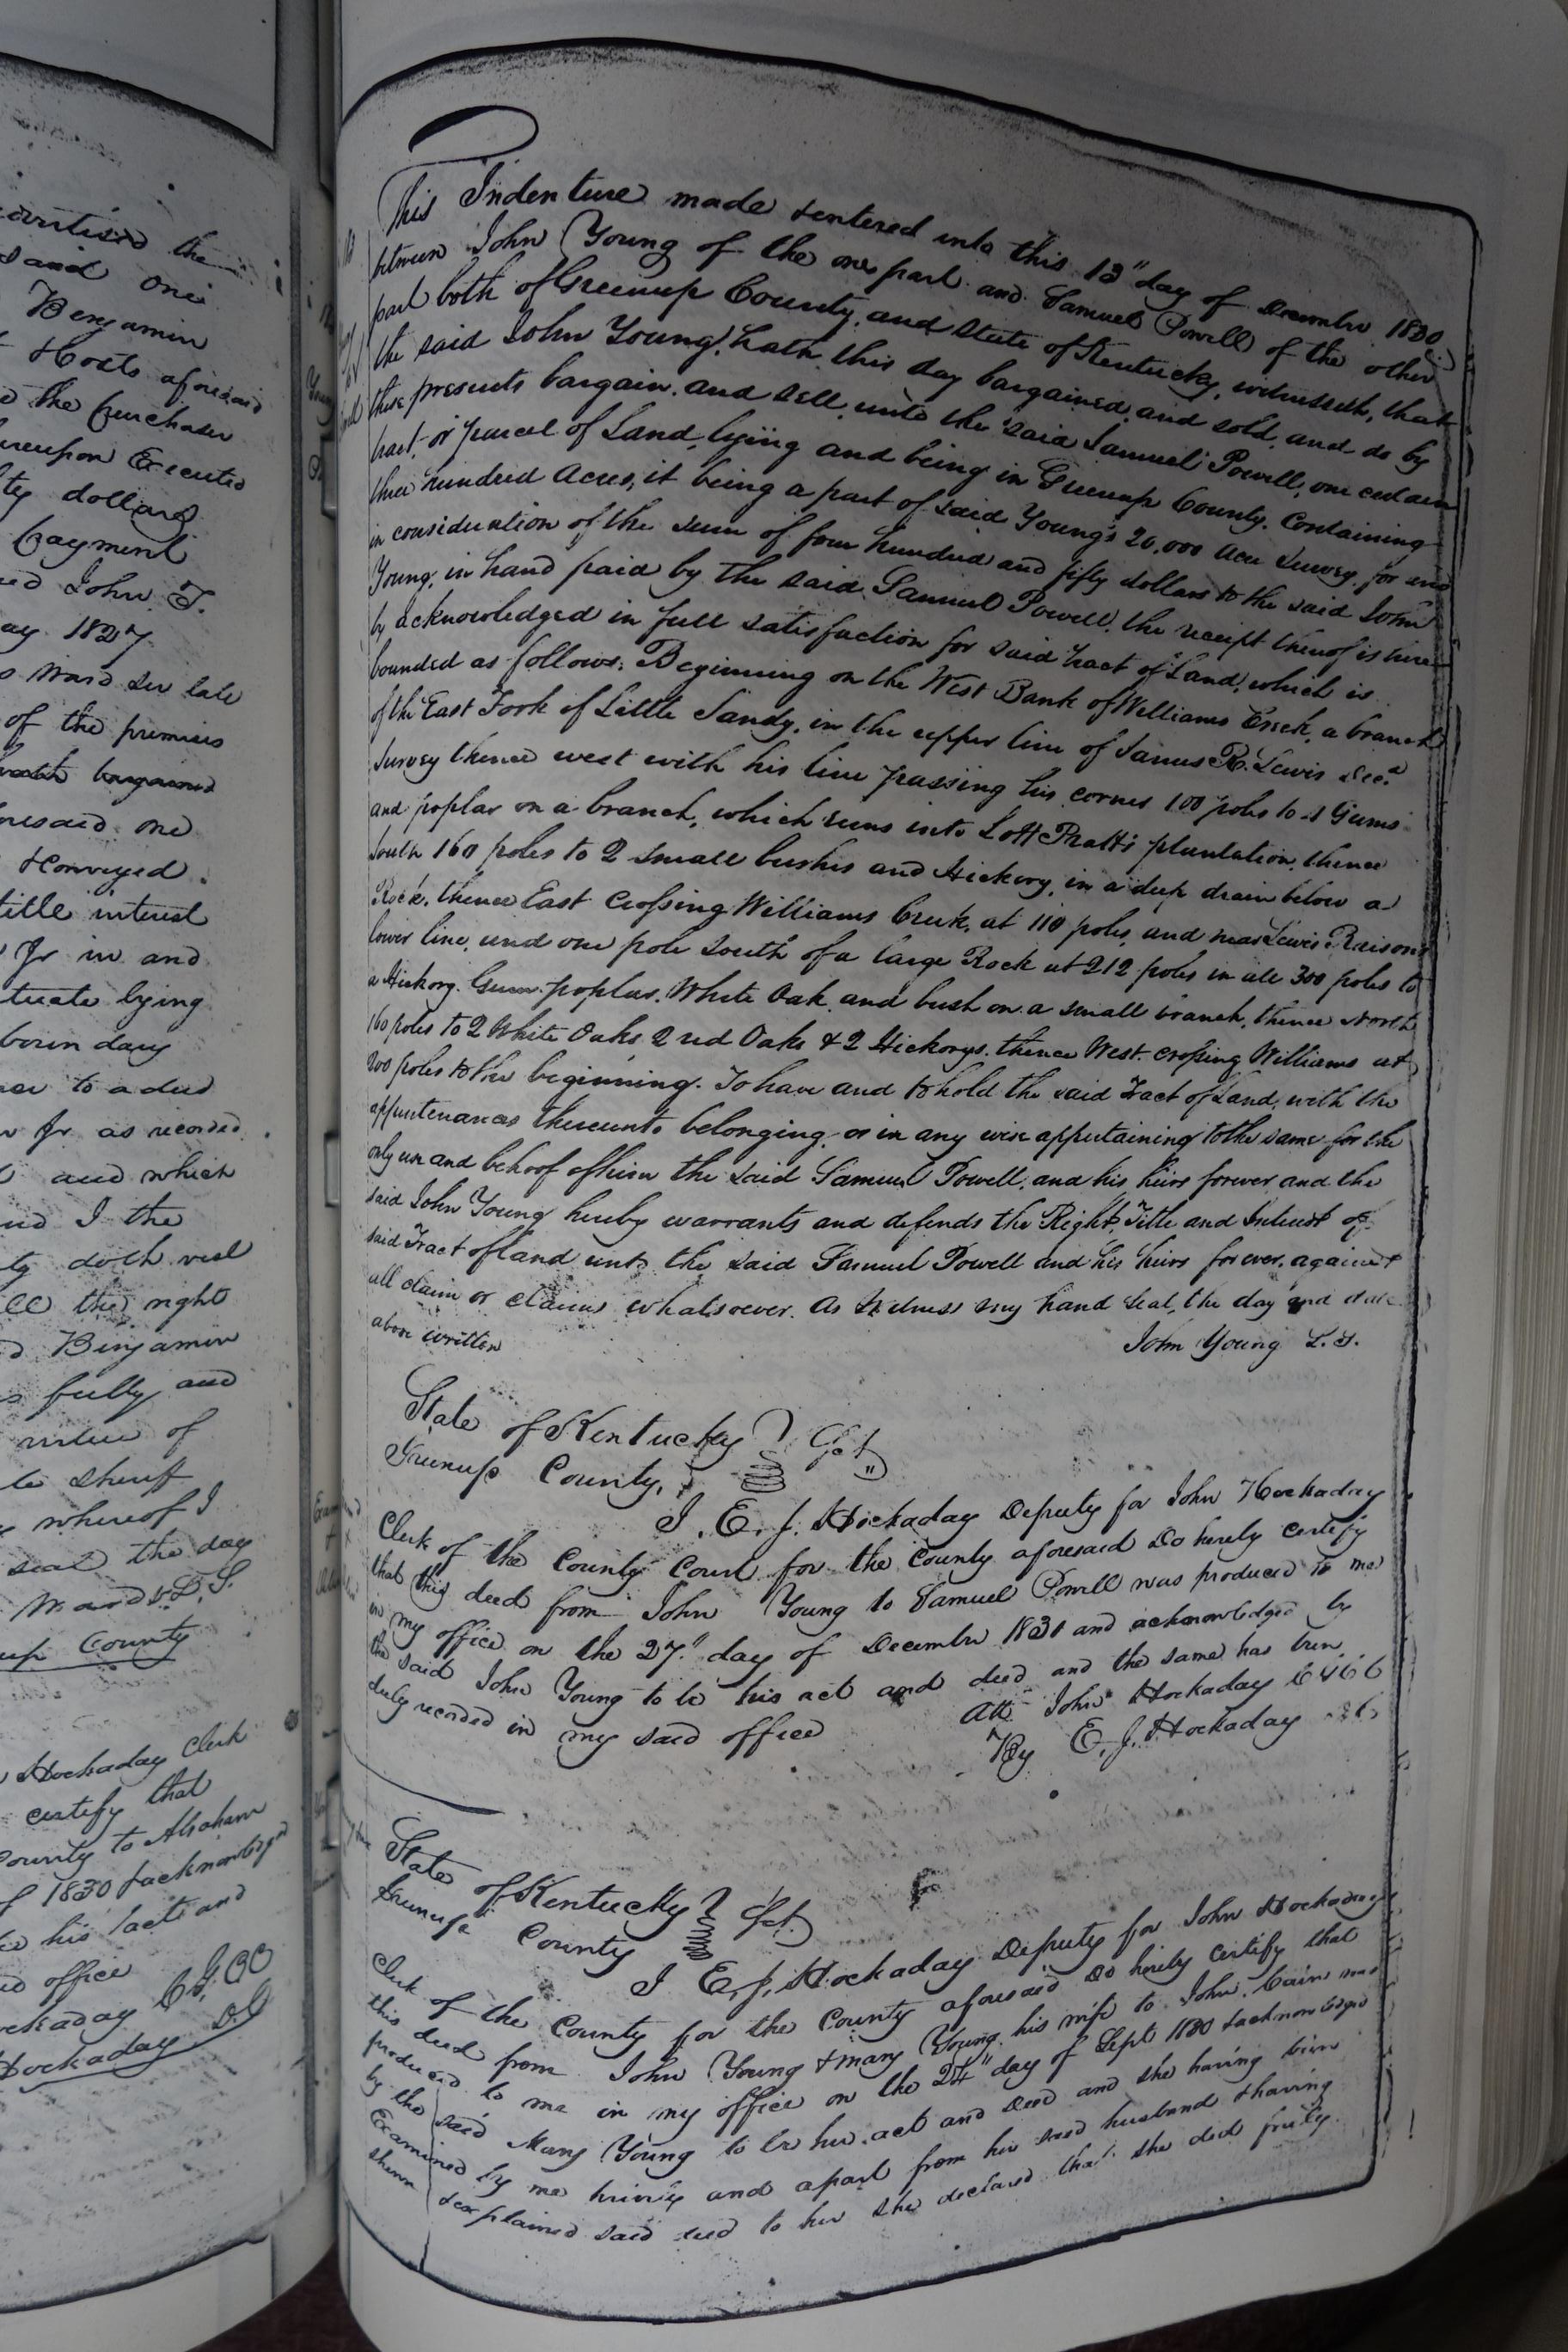 the
and one
Benjamin
Hosts aforesaid
the Purchaser
Executed
dollars
payment
John T.
1827
Ward
of the premises
bargained
one
& conveyed
title interest
Jr in and
lying
to a deed
Jr. as recorded
and which
I the
doth
the right
Benjamin
fully and
virtue of
sheriff
whereof I
seal the day
Ward L.S.
County
Hockaday Clerk
certify that
County to Abraham
1830 & acknowledged
his act and
office
Hockaday
Hockaday
This Indenture made & entered into this 13" day of December 1830
between John Young of the one part and Samuel Powell of the other
part both of Greenup County, and State of Kentucky, witnesseth, that
the said John Young, hath this day bargained and sold, and do by
these presents bargain, and sell, unto the said Samuel Powell, one certain
tract, or parcel of Land, lying and being in Greenup County. Containing
three hundred Acres, it being a part of said Young's 20,000 acre Survey, for and
in consideration of the sum of four hundred and fifty dollars to the said John
Young, in hand paid by the said Samuel Powell, the receipt thereof is here
by acknowledged in full satisfaction for said tract of Land, which is
bounded as follows: Beginning on the West Bank of Williams Creek, a branch
of the East Fork of Little Sandy, in the upper line of James R. Lewis
Survey thence west with his line passing his corner 100 poles to Gums
and poplar on a branch, which runs into Lott Pratt's plantation, thence
South 160 poles to 2 small bushes and Hickory, in a deep drain below a
Rock, thence East Crossing Williams Creek, at 110 poles, and near Lewis Raisons
lower line, and one pole south of a large Rock at 212 poles in all 300 poles to
a Hickory. Gum. poplar. White Oak. and bush on a small branch, thence North
160 poles to 2 White Oaks 2 red Oaks & 2 Hickorys. thence West. crossing Williams at
200 poles to the beginning. To have and to hold the said Tract of Land, with the
appurtenances thereunto belonging, or in any wise appertaining to the same for the
only use and behoof of him the said Samuel Powell, and his heirs forever and the
said John Young hereby warrants and defends the Right, Title and Interest of
said Tract of land unto the said Samuel Powell and his heirs forever, against
all claim or claims whatsoever. As Witness my hand Seal, the day and date
above written
John Young L.S.
State of Kentucky
Greenup County, Sct"
I, E. J. Hockaday Deputy for John Hockaday
Clerk of the County Court for the County aforesaid Do hereby certify
that this deed from John Young to Samuel Powell was produced to me
in my office on the 27" day of December 1830 and acknowledged by
the said John Young to be his act and deed and the same has been
duly recorded in my said office
Att John Hockaday
By E. J. Hockaday
State of Kentucky
Greenup County Sct.
I E, J, Hockaday Deputy for John Hockaday
Clerk of the County for the County aforesaid Do hereby certify that
this deed from John Young & Mary Young his wife to John. Cain was
produced to me in my office on the 24" day of Sept 1830 & acknowledged
by the said Mary Young to be her act and deed and she having been
Examined by me privily and apart from her said husband & having
shewn & explained said deed to her she declared that she did freely